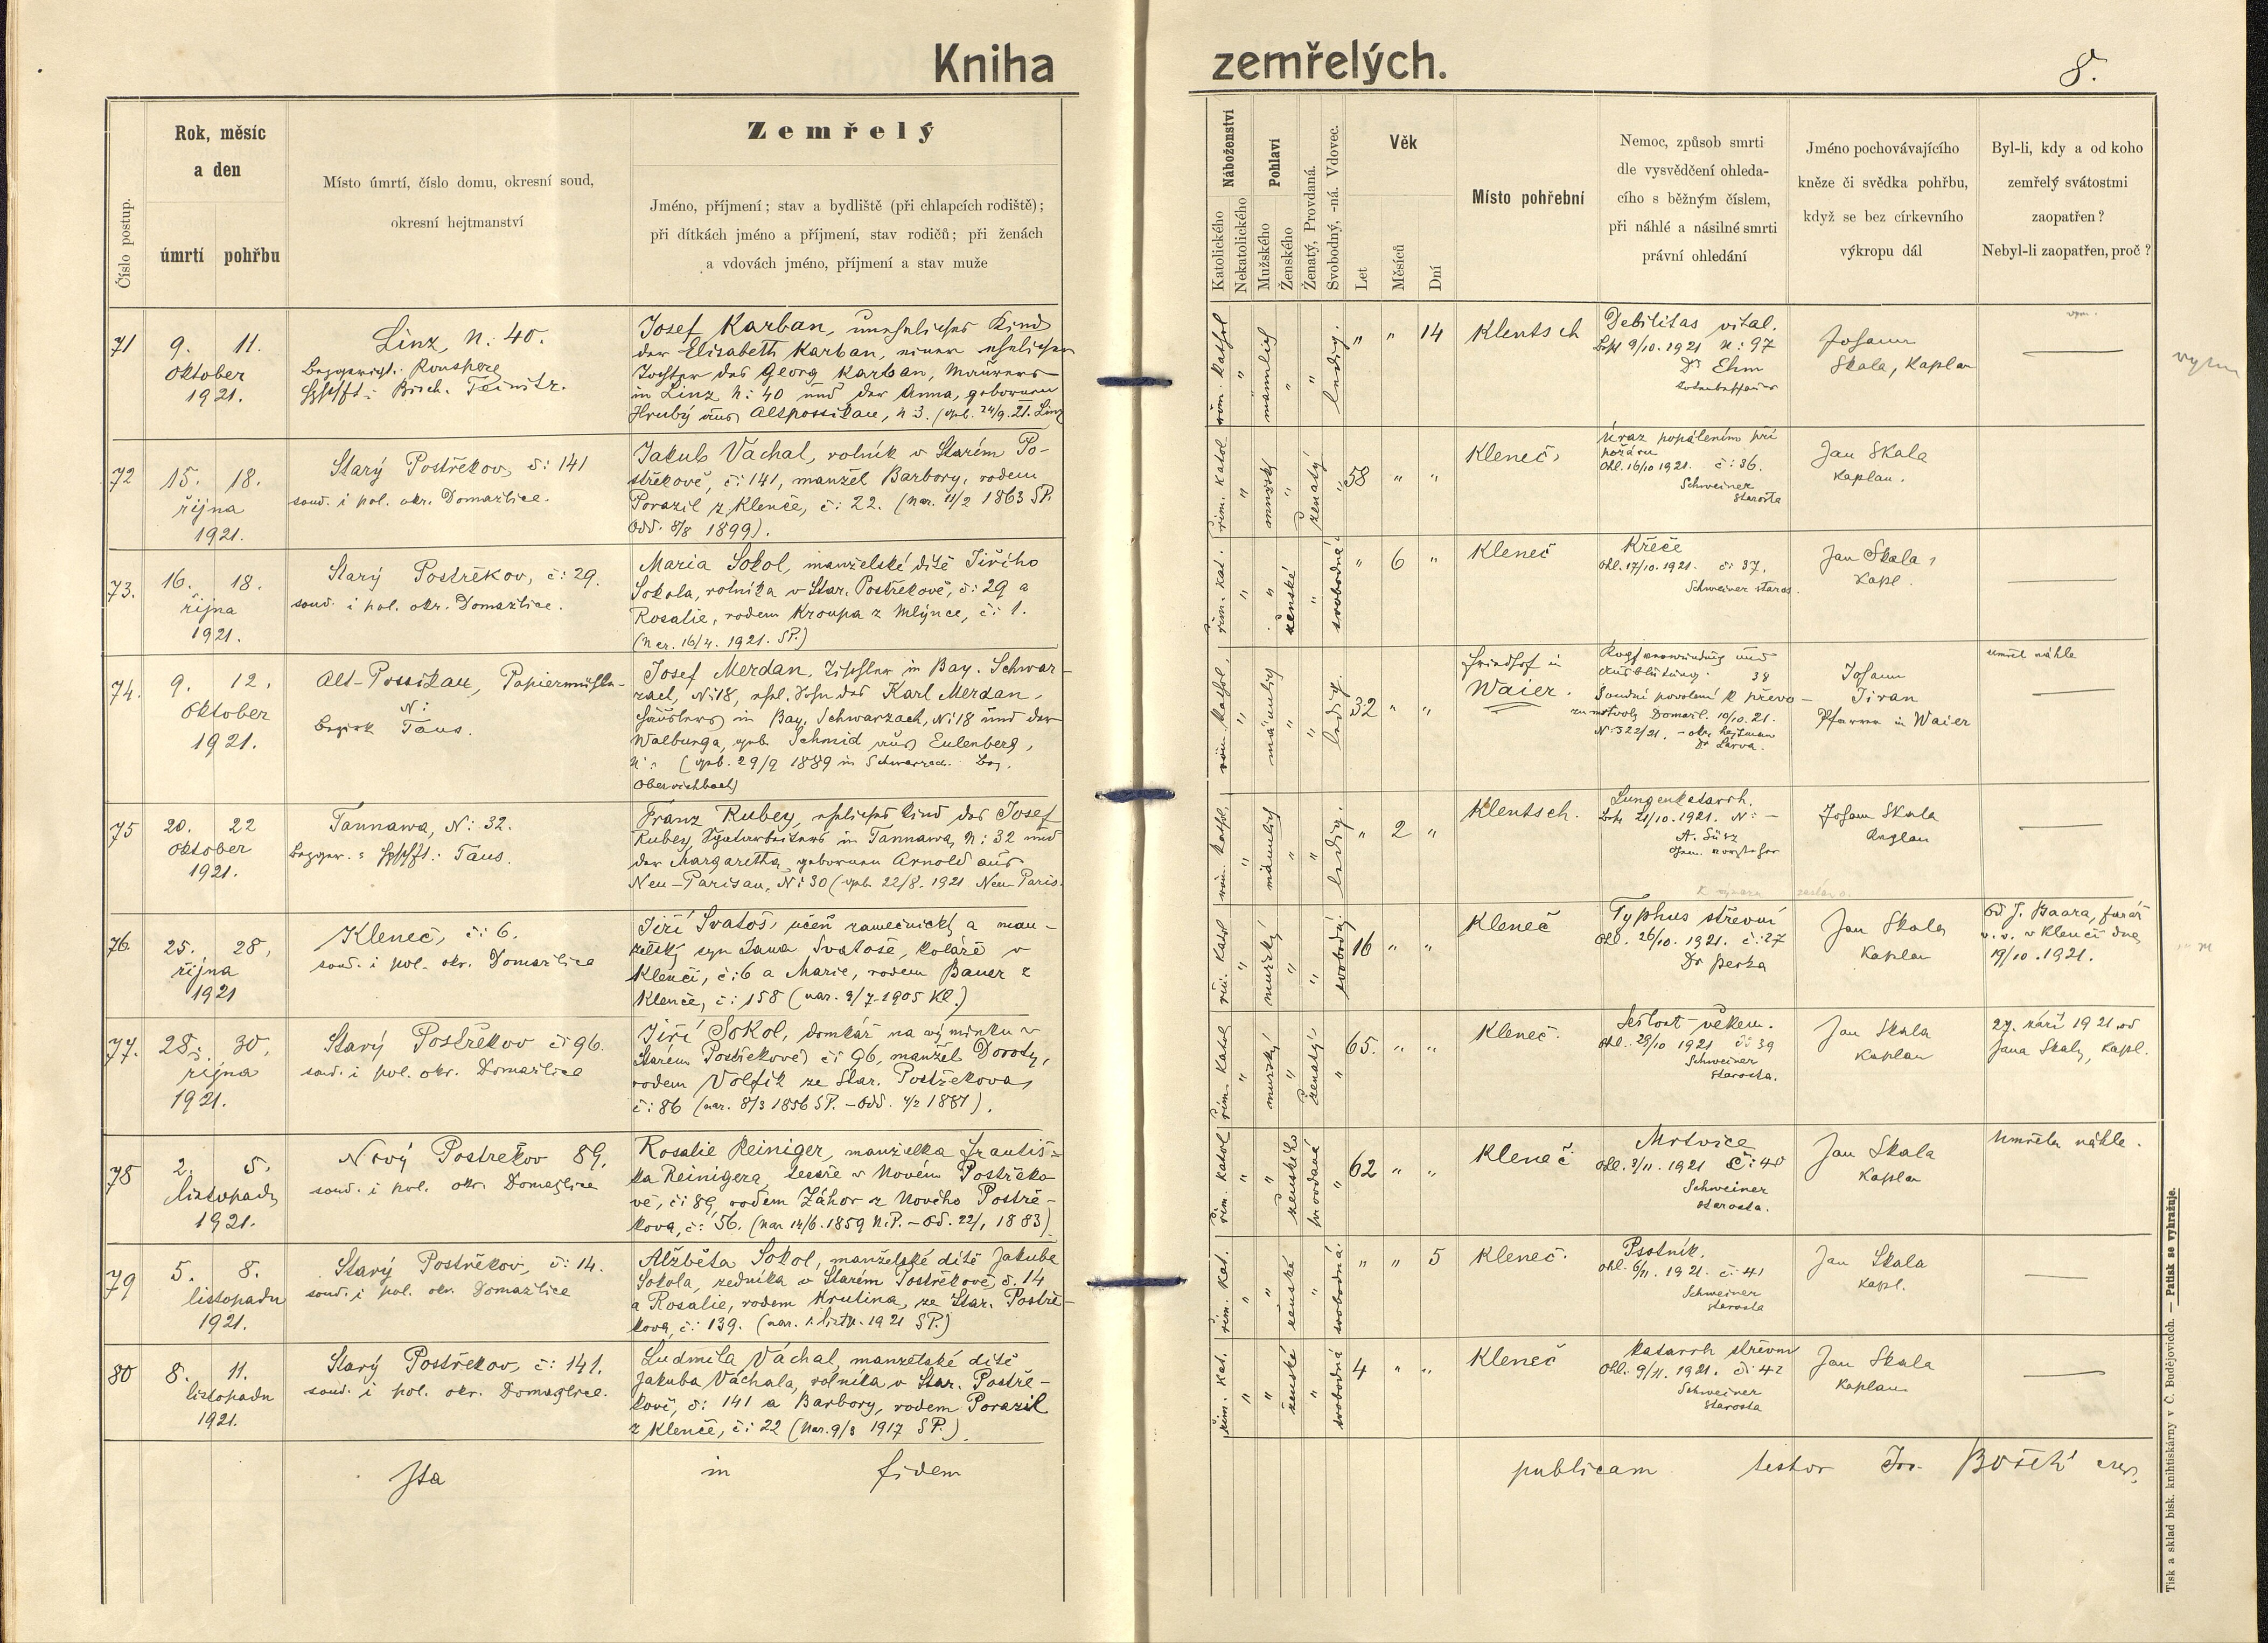 Kniha zemřelých.
8.
Číslo postup.
Rok, měsíc
a den
úmrtí pohřbu
Místo úmrtí, číslo domu, okresní soud,
okresní hejtmanství
Zemřelý
Jméno, příjmení; stav a bydliště (při chlapcích rodiště);
při dítkách jméno a příjmení, stav rodičů; při ženách
a vdovách jméno, příjmení a stav muže
Náboženství
Katolického
Nekatolického
Pohlaví
Mužského
Ženského
Ženatý, Provdaná.
Svobodný, -ná. Vdovec.
Věk
Let
Měsíců
Dní
Místo pohřební
Nemoc, způsob smrti
dle vysvědčení ohleda-
cího s běžným číslem,
při náhlé a násilné smrti
právní ohledání
Jméno pochovávajícího
kněze či svědka pohřbu,
když se bez církevního
výkropu dál
Byl-li, kdy a od koho
zemřelý svátostmi
zaopatřen?
Nebyl-li zaopatřen, proč?
71
9. 11.
Oktober
1921.
Linz, N: 40.
Bezgericht: Ronsperg
Hptft: Bisch. Teinitz.
Josef Karban, uneheliches Kind
der Elisabeth Karban, einer ehelichen
Tochter des Georg Karban, Maurers
in Linz N: 40 und der Anna, geborenen
Hrubý aus Altpossikau, N 3. (geb. 24/9. 21. Linz
röm. kathol
"
männlich
"
"
ledig.
" " 14
Klentsch
Debilitas vital.
Besch 9/10. 1921 N: 97
Dr Ehm
Totenbeschauer
Johann
Skala, Kaplan
—
72
15. 18.
října
1921.
Starý Postřekov, č: 141
soud. i pol. okr. Domažlice.
Jakub Váchal, rolník v Starém Po-
střekově, č: 141, manžel Barbory, rodem
Porazil z Klenče, č: 22. (nar. 11/2 1863 SP.
Odd. 8/8 1899).
řím. katol
"
mužský
"
ženatý
"
58 " "
Kleneč.
Úraz popálením při
požáru
Ohl. 16/10 1921. č: 36.
Schweiner
starosta
Jan Skala
Kaplan.
73.
16. 18.
října
1921.
Starý Postřekov, č: 29.
soud. i pol. okr. Domažlice.
Maria Sokol, manželské dítě Jiřího
Sokola, rolníka v Star. Postřekově, č: 29 a
Rosalie, rodem Kroupa z Mlýnce, č: 1.
(nar. 16/4. 1921. SP.)
řím. kat.
"
"
ženské
"
svobodná.
" 6 "
Kleneč
Křeče
Ohl. 17/10. 1921. č: 37.
Schweiner staros.
Jan Skala,
Kapl.
—
74.
9. 12.
Oktober
1921.
Alt-Possikau, Papiermühle
N:
Bezirk Taus.
Josef Merdan, Tischler in Bay. Schwar-
zach, N: 18, ehel. Sohn des Karl Merdan,
Häuslers in Bay. Schwarzach, N: 18 und der
Walburga, geb. Schmid aus Eulenberg,
N: (geb. 29/9 1889 in Schwarzach. Bez.
Oberviechtach)
röm. kathol.
"
männlich
"
"
ledig.
32 " "
Friedhof in
Waier.
und
Ausblutung. 38
Soudní povolení k převo-
zu mrtvoly Domažl. 10/10. 21.
N: 322/21. – okr. hejtman
Johann
Jiran
Pfarrer in Waier
umřel náhle
—
75
20. 22
Oktober
1921.
Tannawa, N: 32.
Bezger. : Hptft.: Taus.
Franz Rubey, eheliches Kind des Josef
Rubey, in Tannawa, N: 32 und
der Margaretha, geborenen Arnold aus
Neu-Parisau, N: 30 (geb. 22/8. 1921 Neu-Paris.
röm. kathol.
"
männlich
"
"
ledig.
" 2 "
Klentsch.
Lungenkatarrh.
21/10. 1921. N: –
Johann Skala
Kaplan
—
76.
25. 28.
října
1921
Kleneč, č: 6.
soud. i pol. okr. Domažlice
Jiří Svatoš, učeň zámečnický a man-
želský syn Jana Svatoše, koláře v
Klenčí, č: 6 a Marie, rodem Bauer z
Klenče, č: 158 (nar. 9/7. 1905 Kl.)
řím. katol
"
mužský
"
"
svobodný.
16 " "
Kleneč
Typhus střevní
Ohl. 26/10. 1921. č: 27
Dr Perka
Jan Skala
Kaplan
Od J. Baara, faráře
v. v. v Klenčí dne
19/10. 1921.
77.
28. 30.
října
1921.
Starý Postřekov č: 96.
soud. i pol. okr. Domažlice
Jiří Sokol, domkář na výminku v
Starém Postřekově č: 96, manžel Doroty,
rodem Volfík ze Star. Postřekova,
č: 86 (nar. 8/3 1856 SP. – Odd. 4/2 1887).
řím. katol
"
mužský
"
ženatý.
"
65. " "
Kleneč.
Sešlost věkem.
Ohl. 29/10 1921 č: 39
Schweiner
starosta.
Jan Skala
Kaplan
27. září 1921 od
Jana Skaly, kapl.
78
2. 5.
listopadu
1921.
Nový Postřekov 89.
soud. i pol. okr. Domažlice
Rosalie Reiniger, manželka Františ-
ka Reinigera, tesaře v Novém Postřeko-
vě, č: 89, rodem Záhoř z Nového Postře-
kova, č: 56. (nar 14/6. 1859 N.P. – Od. 22/1 1883)
řím. katol
"
"
ženského
provdaná
"
62 " "
Kleneč
Mrtvice
Ohl. 3/11. 1921 č: 40
Schweiner
starosta.
Jan Skala
Kaplan
Umřela náhle.
79
5. 8.
listopadu
1921.
Starý Postřekov, č: 14.
soud. i pol. okr. Domažlice
Alžběta Sokol, manželské dítě Jakuba
Sokola, zedníka v Starém Postřekově, č. 14
a Rosalie, rodem Krutina, ze Star. Postře-
kova, č: 139. (nar. 1. listp. 1921 SP.)
řím. kat.
"
"
ženské
"
svobodná.
" " 5
Kleneč.
Psotník.
Ohl. 6/11. 1921. č: 41
Schweiner
starosta
Jan Skala
Kapl.
—
80
8. 11.
listopadu
1921.
Starý Postřekov, č: 141.
soud. i pol. okr. Domažlice.
Ludmila Váchal, manželské dítě
Jakuba Váchala, rolníka v Star. Postře-
kově, č: 141 a Barbory, rodem Porazil
z Klenče, č: 22 (nar. 9/3 1917 SP.).
řím. kat.
"
"
ženské
"
svobodná
4 " "
Kleneč
Katarrh střevní
Ohl. 9/11. 1921. č: 42
Schweiner
starosta
Jan Skala
Kaplan
—
Ita in fidem publicam testor
Tisk a sklad bisk. knihtiskárny v Č. Budějovicích. — Patisk se vyhražuje.